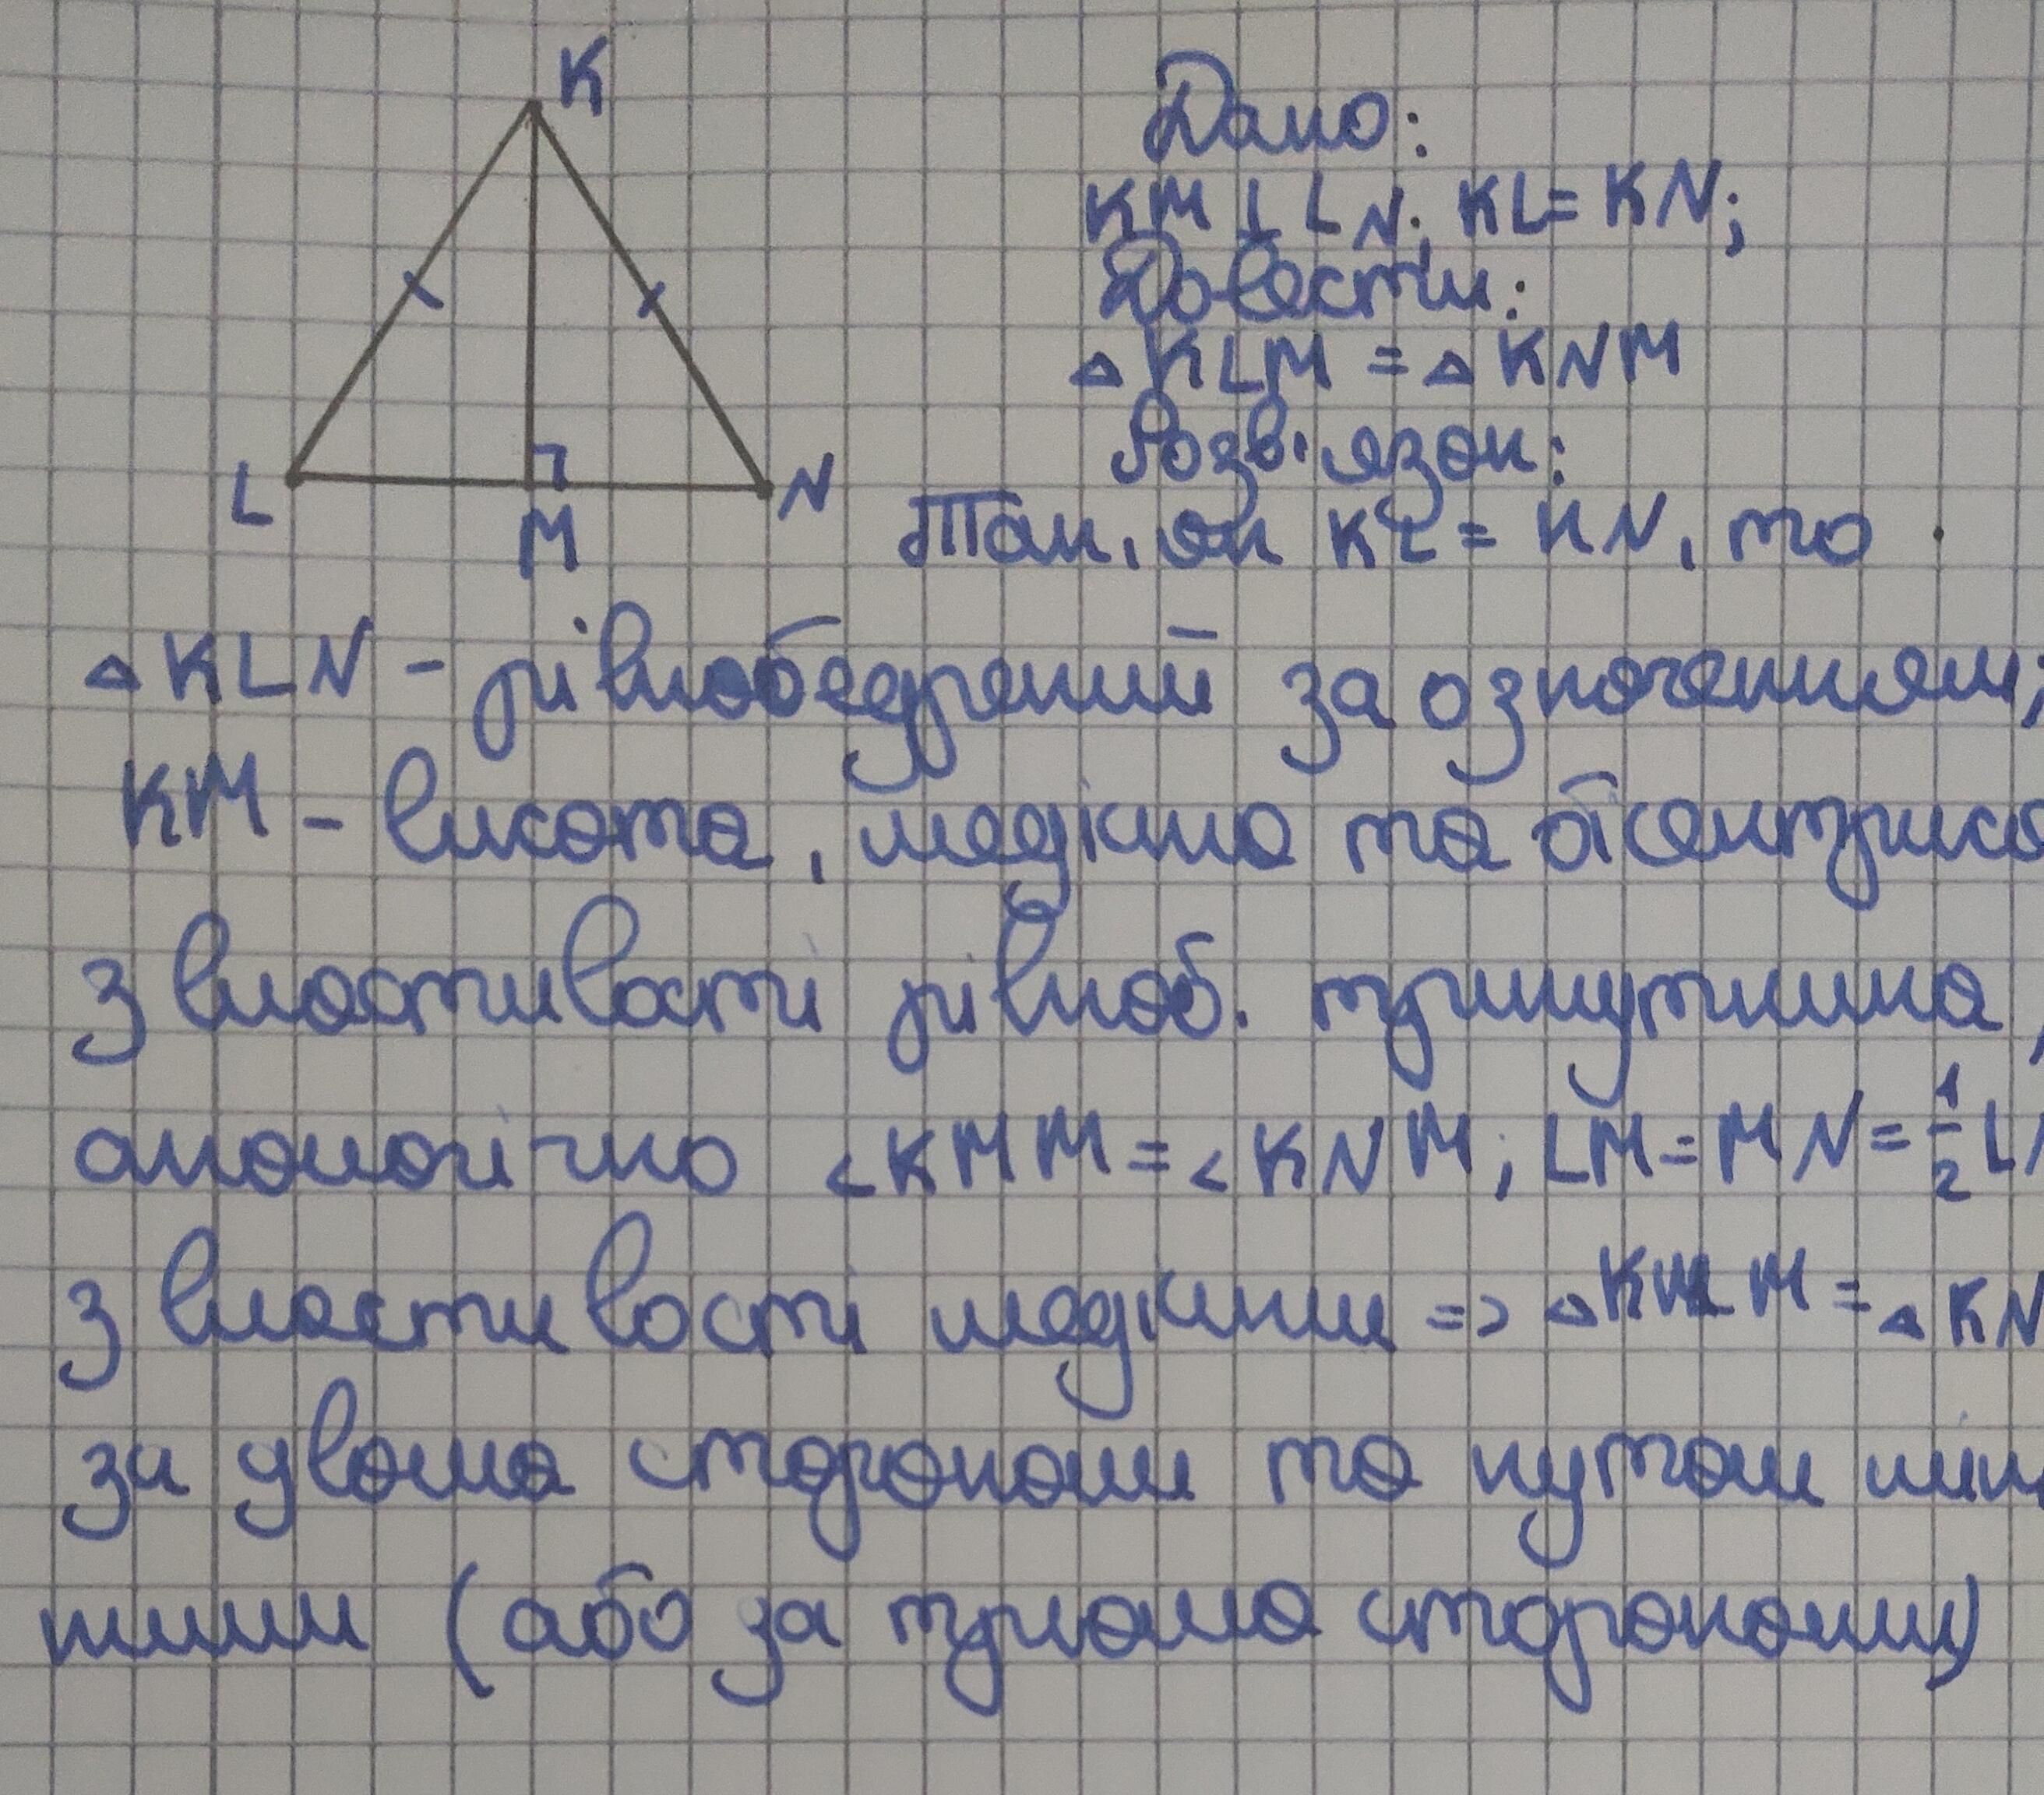 K
L
M
N
Дано:
KM ⊥ LN; KL = KN;
Довести:
△KLM = △KNM
Розв'язок:
Так, як KL = KN, то
△KLN - рівнобедрений за означенням;
KM - висота, медіана та бісектриса
з властивості рівноб. трикутника,
аналогічно ∠KMM = ∠KNM; LM = MN = 1/2 LN
з властивості медіани => △KLM = △KN
за двома сторонами та кутом між
ними (або за трьома сторонами)